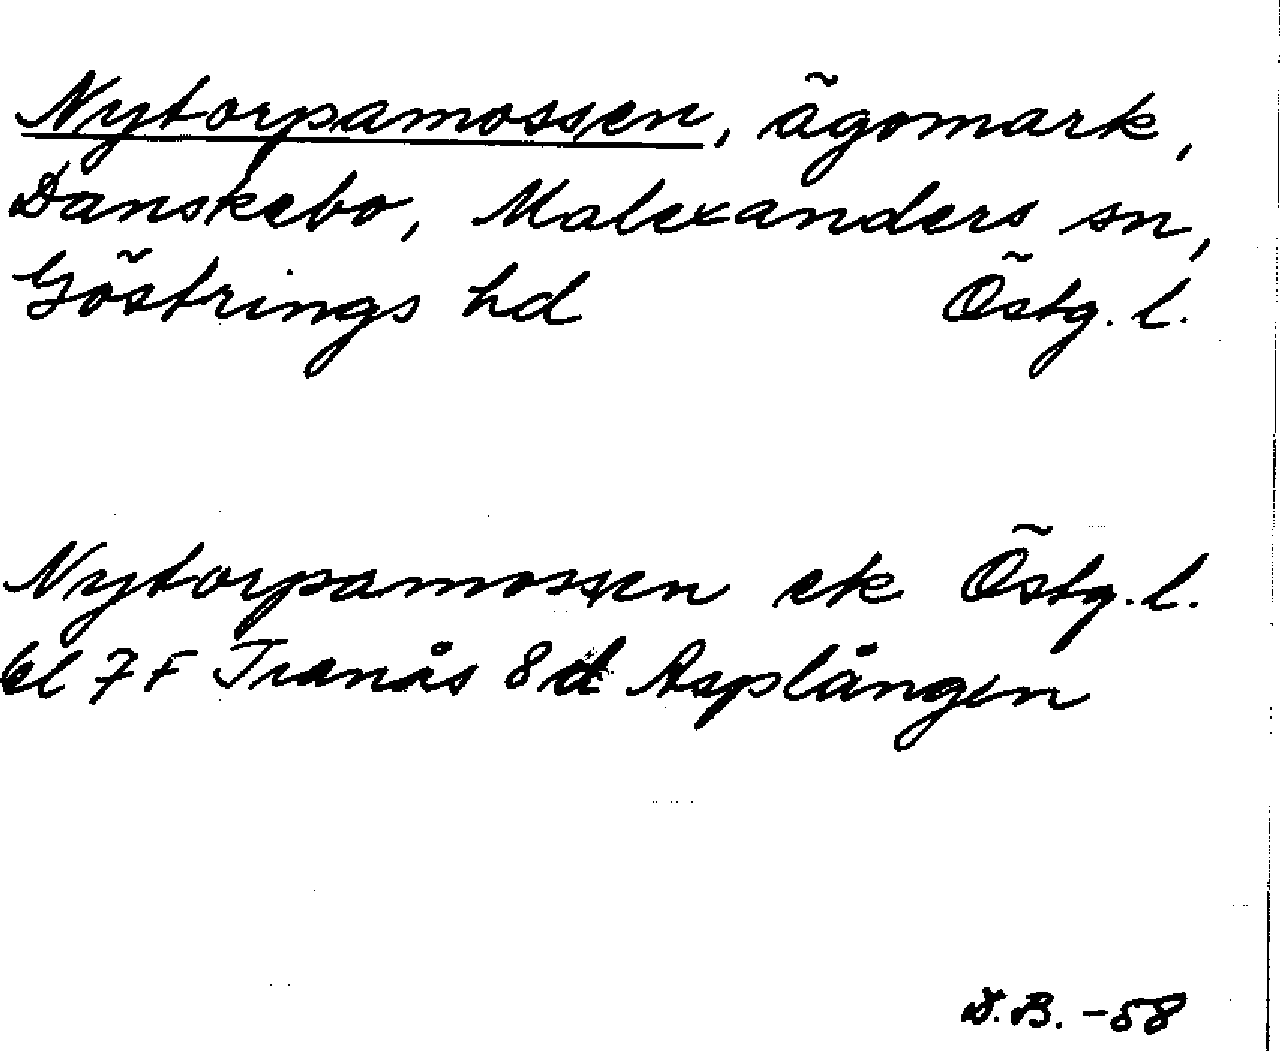 Nytorpamossen, ägomark,
Danskebo, Malexanders sn,
Göstrings hd Östg. l.
Nytorpamossen ek Östg. l.
bl 7 F Tranås 8 d Asplången
D.B. -58